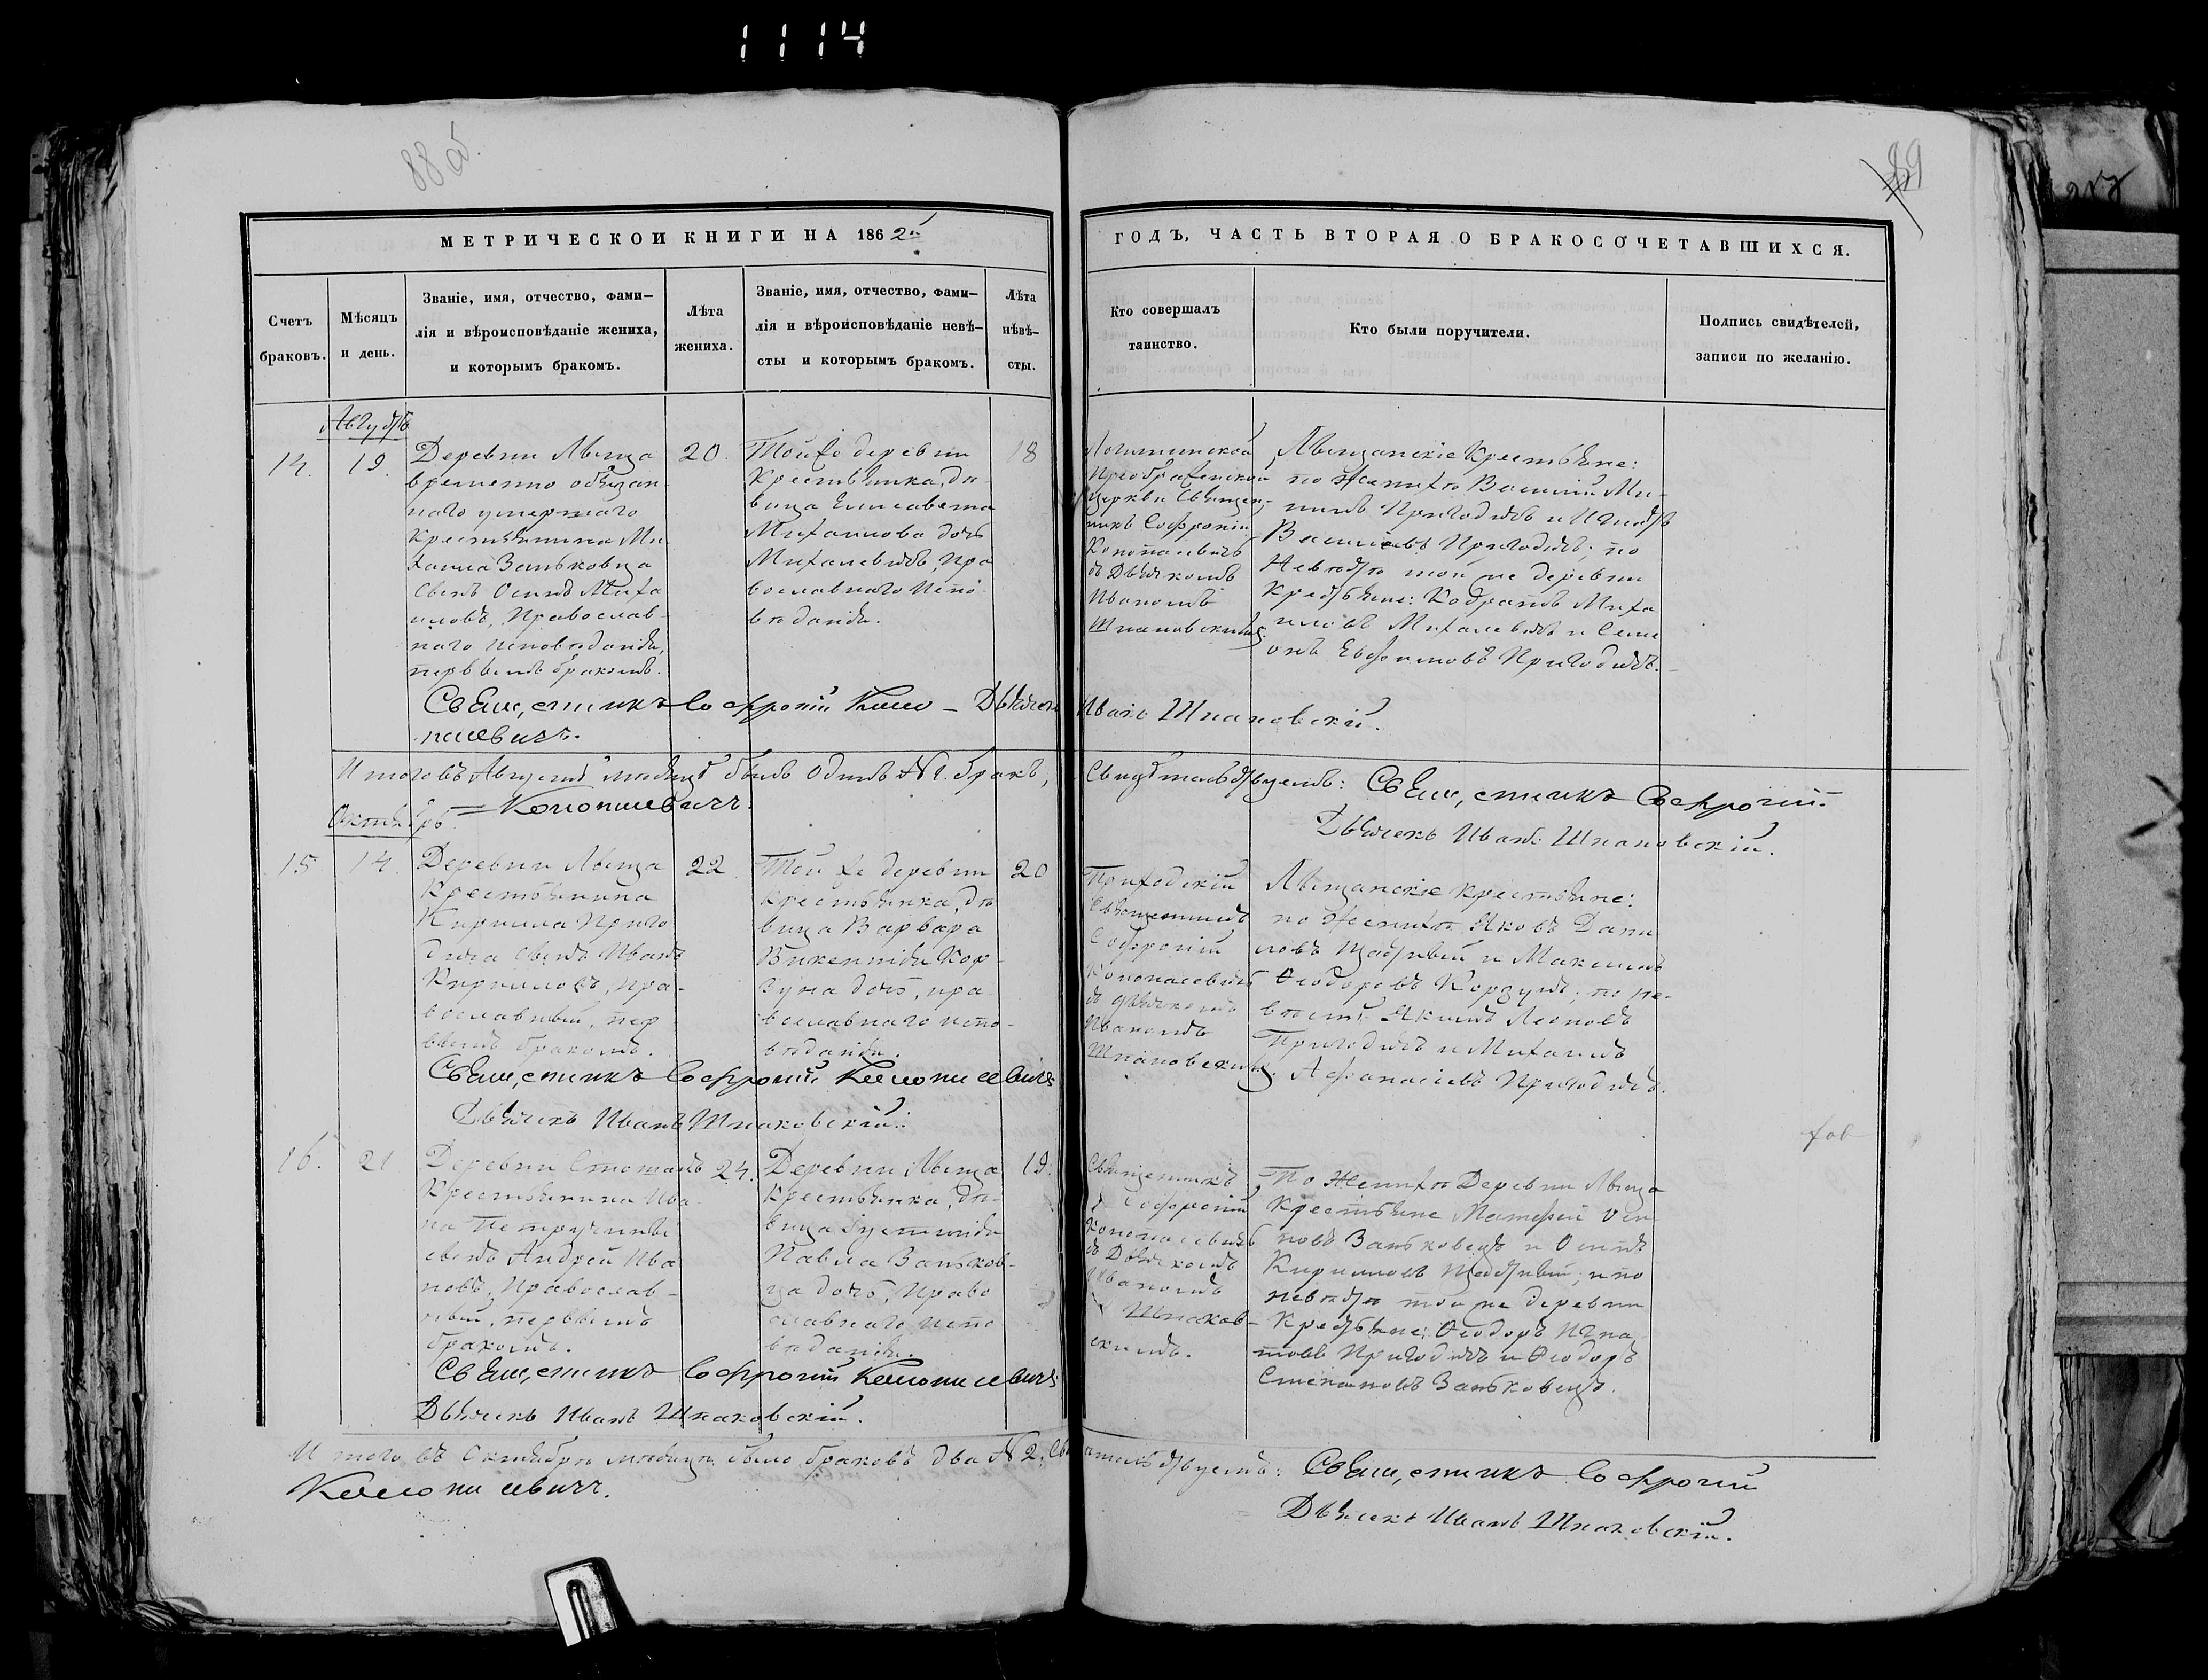 1114
88 об.
89
МЕТРИЧЕСКОЙ КНИГИ НА 1862й
ГОДЪ, ЧАСТЬ ВТОРАЯ О БРАКОСОЧЕТАВШИХСЯ.
Счетъ
браковъ.
Мѣсяцъ
и день.
Званіе, имя, отчество, фами-
лія и вѣроисповѣданіе жениха,
и которымъ бракомъ.
Лѣта
жениха.
Званіе, имя, отчество, фами-
лія и вѣроисповѣданіе невѣ-
сты и которымъ бракомъ.
Лѣта
нѣвѣ-
сты.
Кто совершалъ
таинство.
Кто были поручители.
Подпись свидѣтелей,
записи по желанію.
Августъ
14.
19.
Деревни Лыща
временно обязан-
наго умершаго
Крестьянина Ми-
хаила Заньковца
сынъ Осипъ Миха
иловъ, Православ-
наго исповѣданія,
первымъ бракомъ.
20.
Той же деревни
Крестьянка, дѣ-
вица Елисавета
Михаилова дочь
Михалевичъ, Пра
вославнаго Испо-
вѣданія.
18
Логишинской
Преображенской
Церкви Священ-
никъ Софроній
Конопасевичъ
съ Дьячкомъ
Иваномъ
Шпаковскимъ
Лыщанскіе Крестьяне:
по Женихѣ Василій Ми-
Пригодичъ и Игнатъ
Васильевъ Пригодичъ; по
Невѣстѣ той же деревни
Крестьяне: Кодратъ Миха
иловъ Михалевичъ и Семе
онъ Евфимовъ Пригодичъ.
Священникъ Софроній Коно- Дьячекъ Иванъ Шпаковскій.
пасевичъ.
Итого въ Августѣ мѣсяцѣ былъ одинъ №1. бракъ, Свидѣтельствуемъ: Священникъ Софроній
Конопасевичъ.
Дьячекъ Иванъ Шпаковскій.
Октябрь.
15
14.
Деревни Лыща
Крестьянина
Кирилла Приго
дича сынъ Иванъ
Кирилловъ, пра-
вославный, пер
вымъ бракомъ.
22
Той же деревни
крестьянка, дѣ
вица Варвара
Викентія Кор-
зуна дочь, пра
вославнаго испо-
вѣданія.
20
Приходскій
Священникъ
Софроній
Конопасевичъ
съ дьячкомъ
Иваномъ
Шпаковскимъ.
Лыщанскіе крестьяне:
по Женихѣ Яковъ Дани
ловъ и Максимъ
Ѳеодоровъ Корзунъ; по не-
вѣстѣ Якимъ Леоновъ
Пригодичъ и Михаилъ
Афанасіевъ Пригодичъ.
Священникъ Софроній Конопасевичъ
Дьячекъ Иванъ Шпаковскій.
16.
21
Деревни
Крестьянина Ива-
на
сынъ Андрей Ива
новъ, Православ-
ный, первымъ
бракомъ.
24.
Деревни Лыща
крестьянка, дѣ-
вица Іустинія
Павла Заньков-
ца дочь, Право
славнаго испо
вѣданія.
19.
Священникъ
Софроній
Конопасевичъ
съ Дьячкомъ
Иваномъ
Шпаков-
скимъ.
По Женихѣ Деревни Лыща
Крестьяне Матфей Оси
повъ Заньковецъ и Осипъ
Кирилловъ и по
невѣстѣ той же деревни
Крестьяне: Ѳеодоръ Игна
товъ Пригодичъ и Ѳеодоръ
Степановъ Заньковецъ.
Священникъ Софроній Конопасевичъ
Дьячекъ Иванъ Шпаковскій.
Итого въ Октябрѣ мѣсяцѣ было браковъ два №2. Свидѣтельствуемъ: Священникъ Софроній
Конопасевичъ.
Дьячекъ Иванъ Шпаковскій.